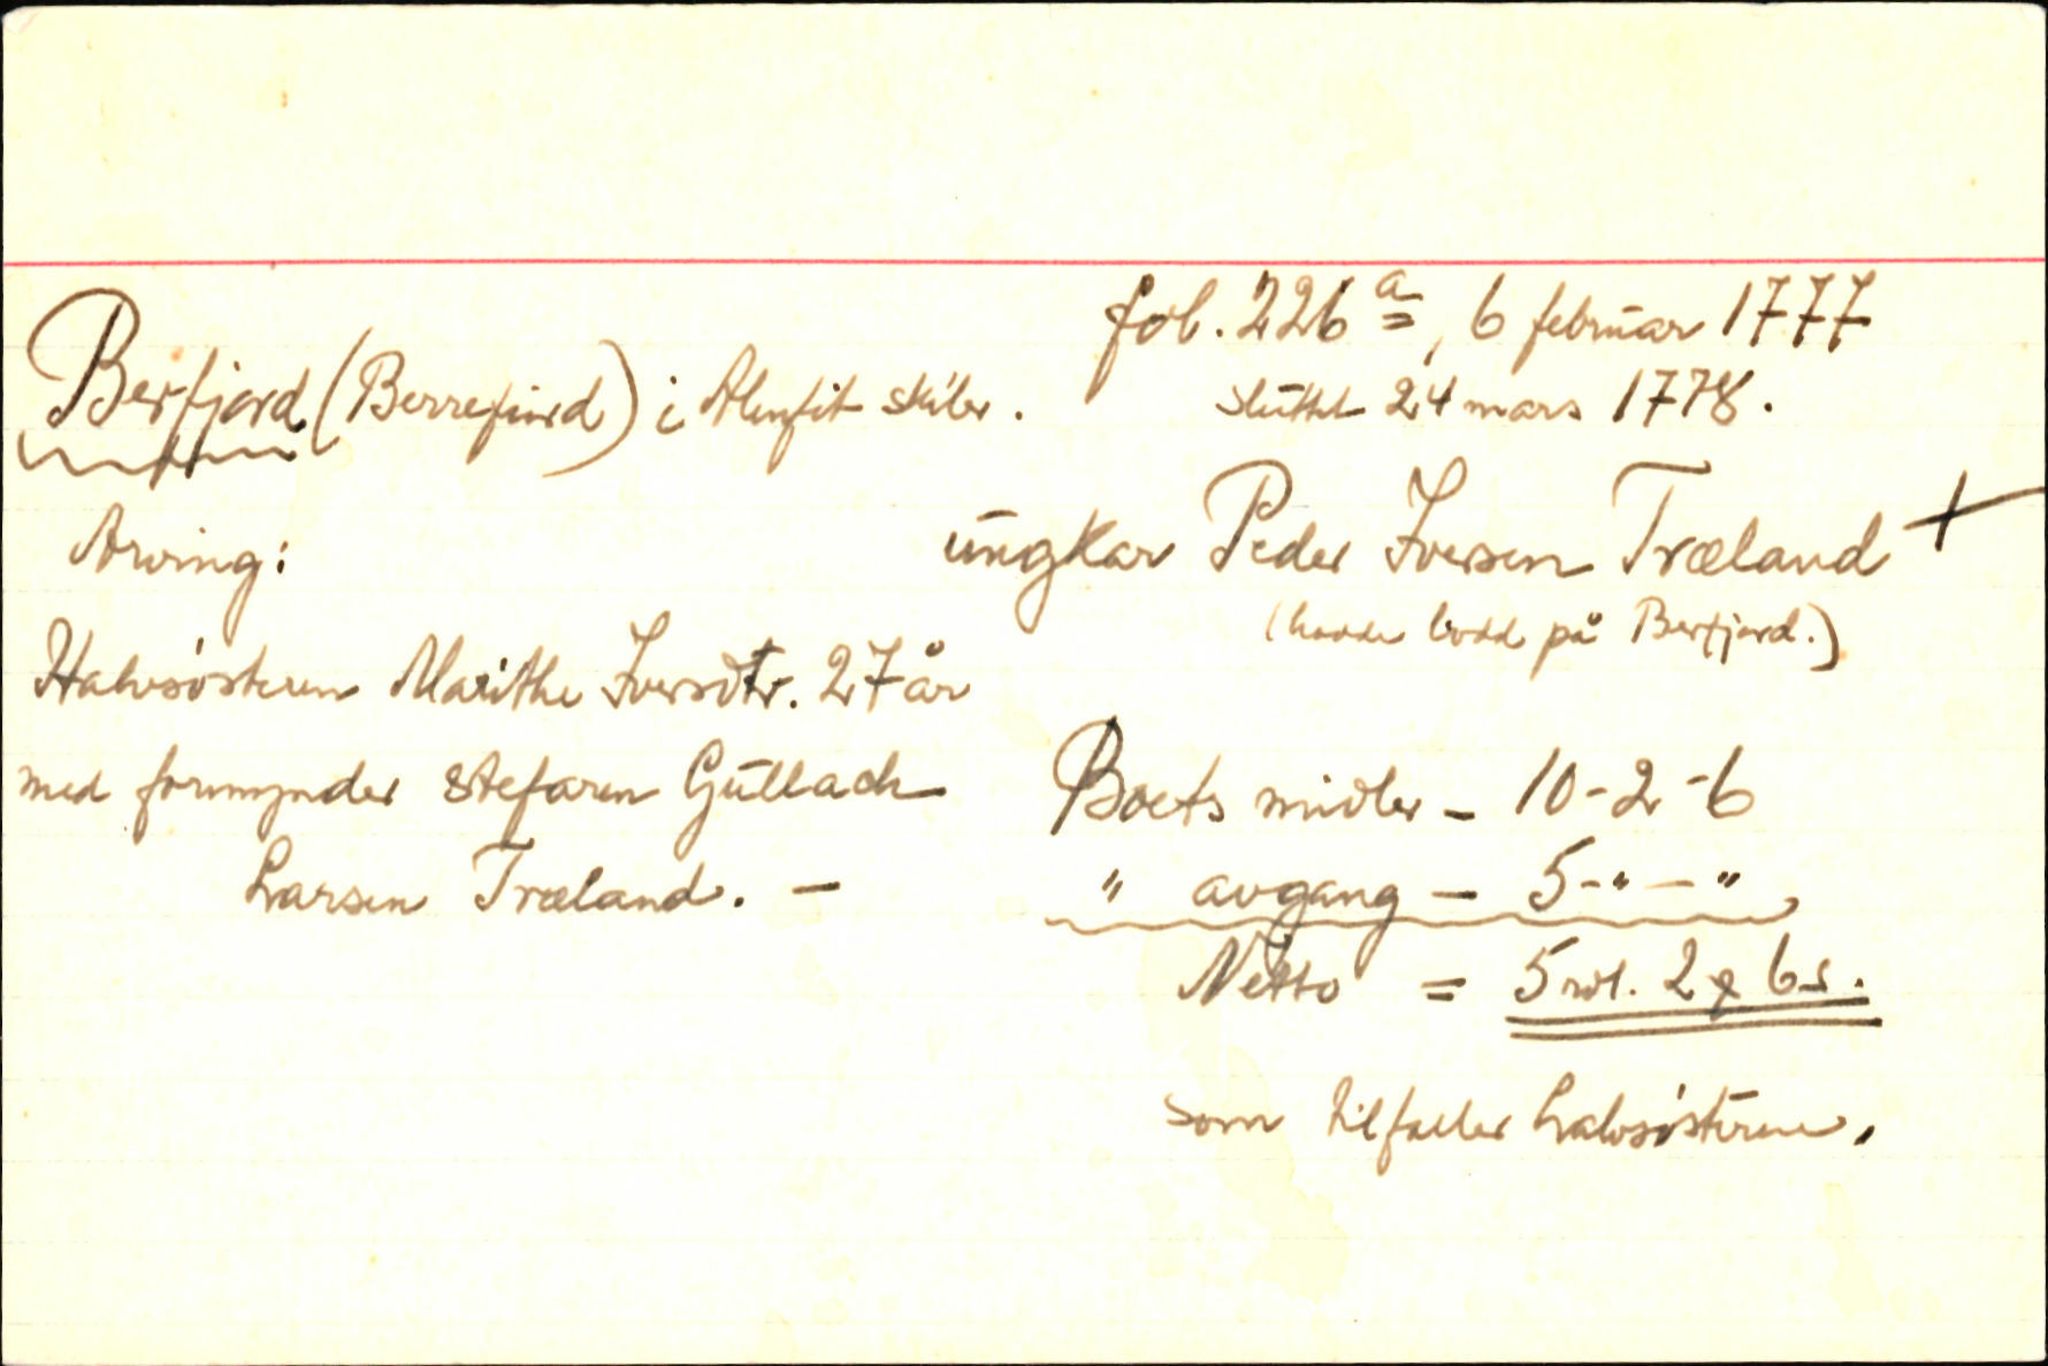 fol. 226 a, 6 februar 1777
Berfjord (Berrefiord) i Alenfit skibr.
sluttet 24 mars 1778.
Arving:
ungkar Peder Iversen Træland +
(hadde bodd på Berfjord.)
Halvsøsteren Marithe Iversdtr. 27 år
med formynder stefaren Gullach
Larsen Træland. —
Boets midler - 10 - 2 - 6
" avgang - 5 - " - "
Netto = 5 rdl. 2 ƺ 6 s.
som tilfaller halvsøsteren.